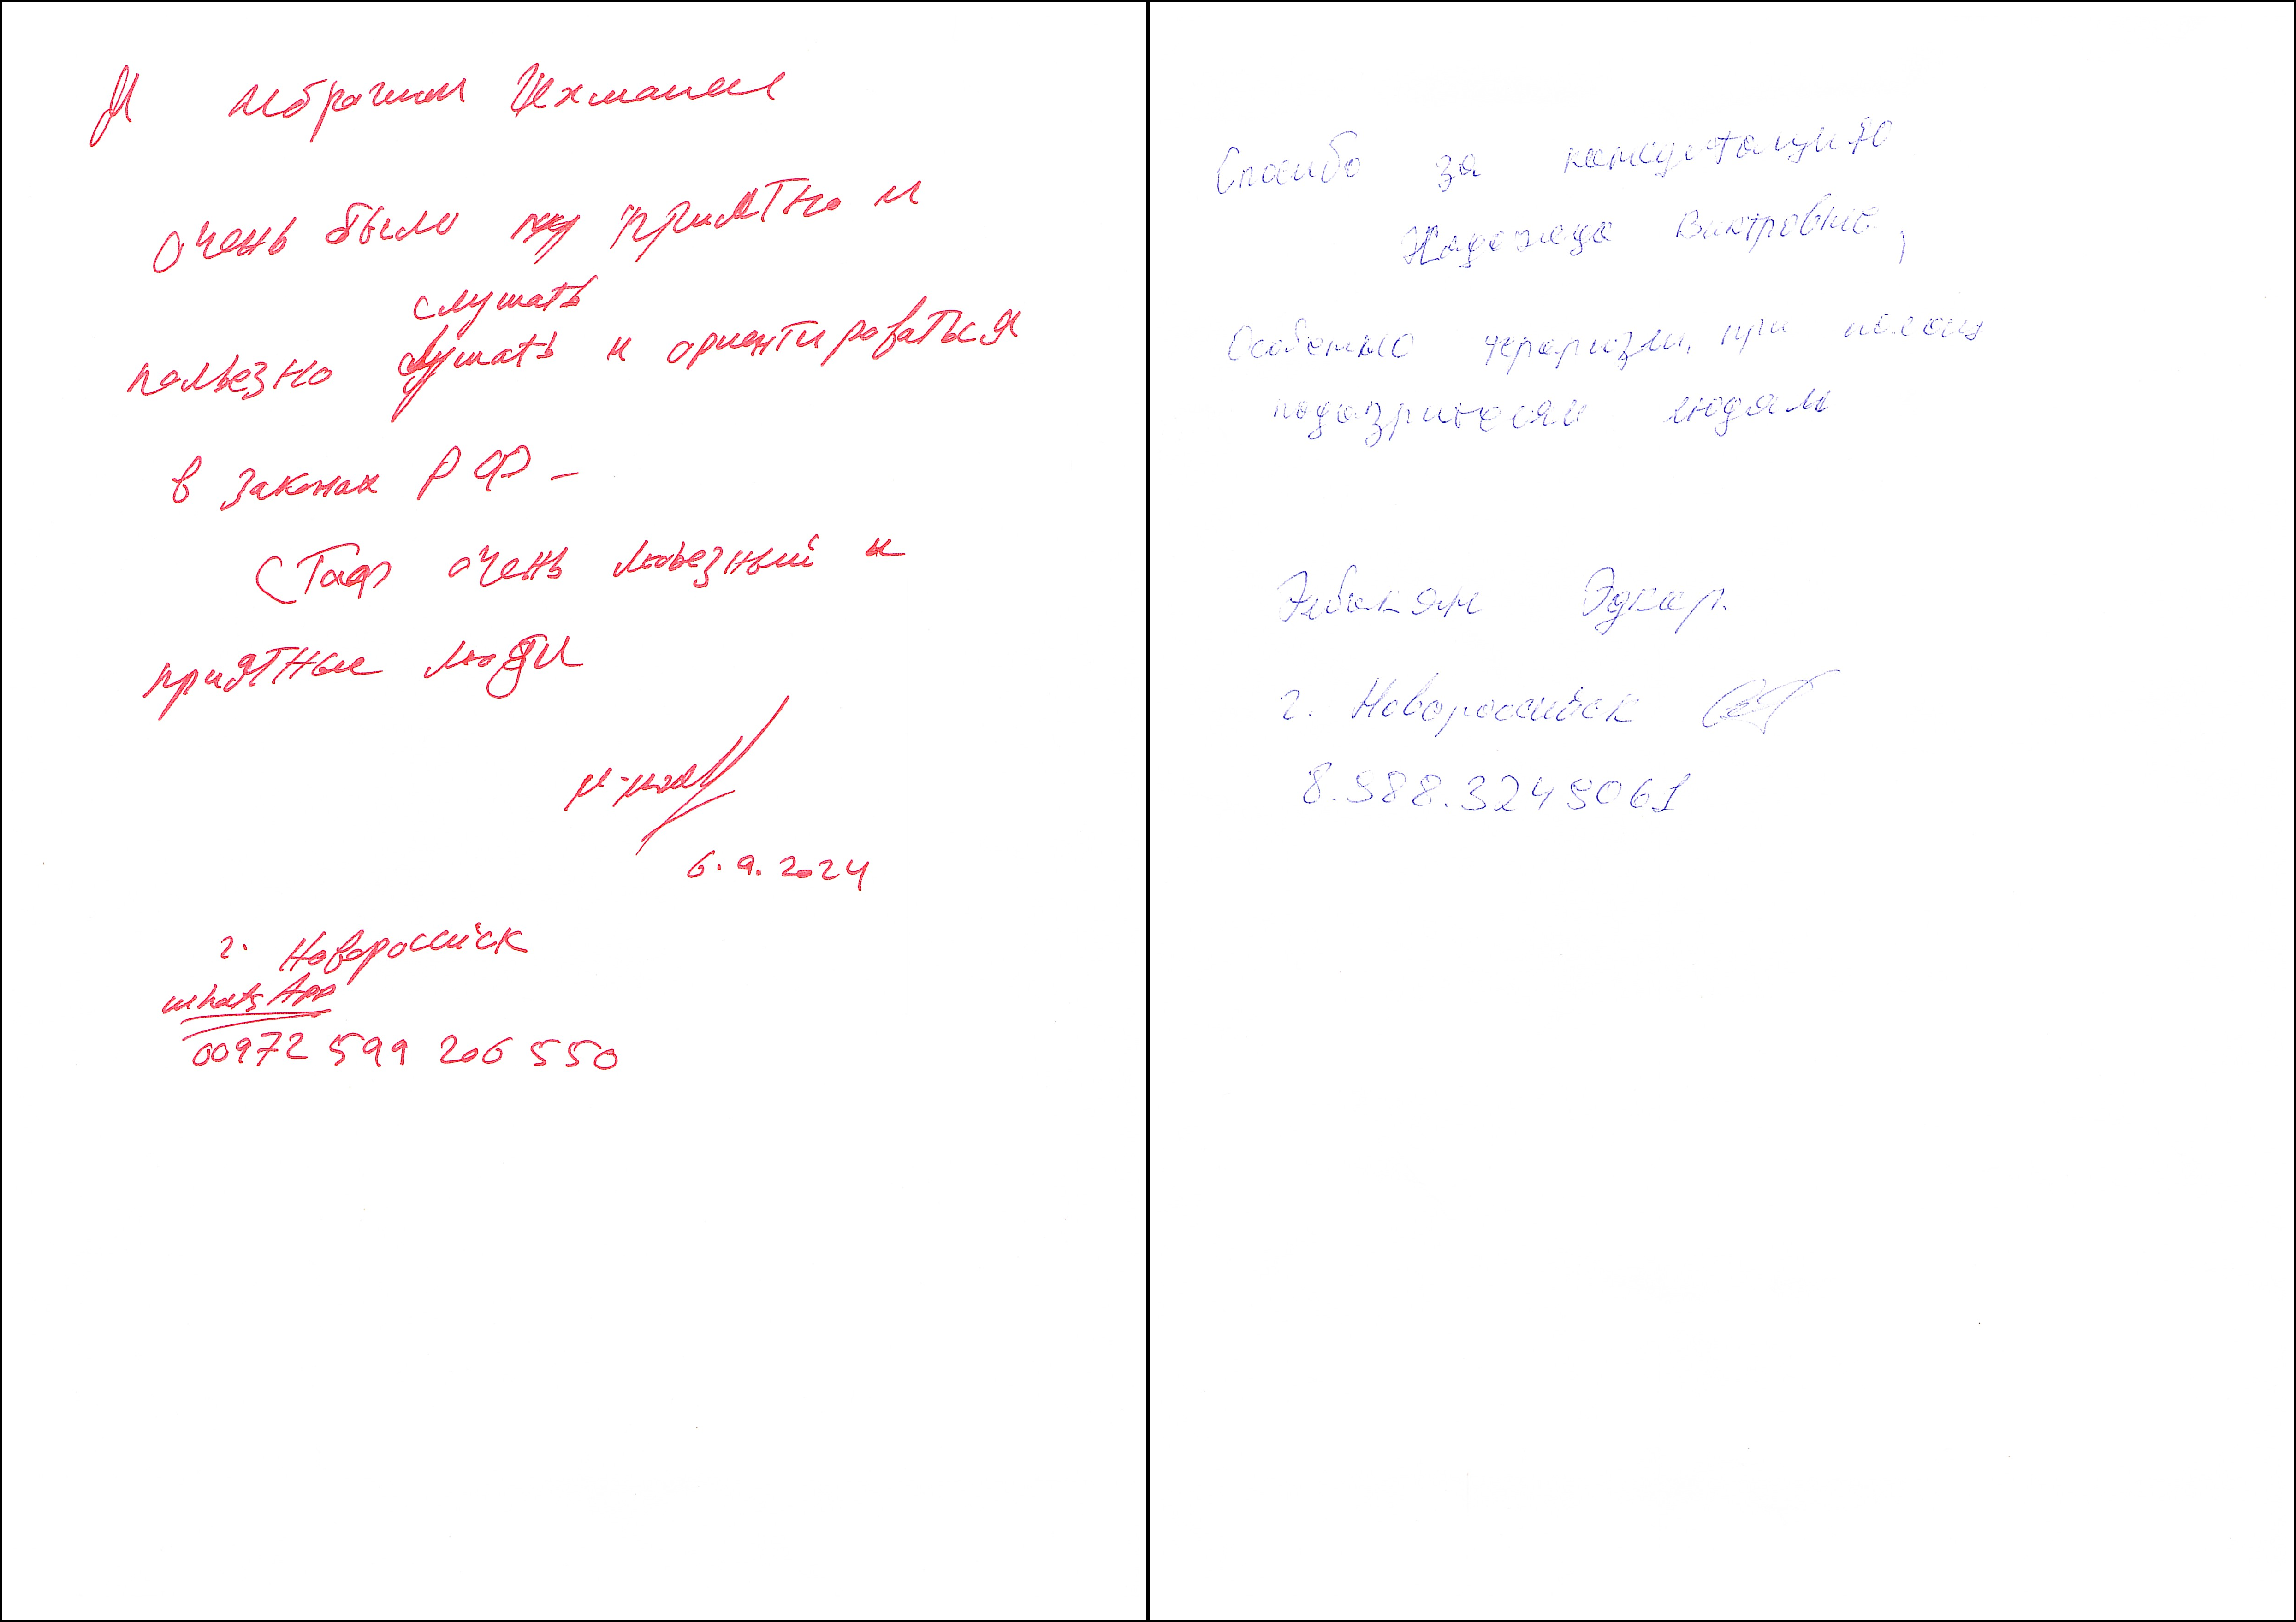 Я Ибрагим
очень было приятно и
слушать
пользезно слушать и ориентироваться
в законах РФ -
Стаф очень любезный и
приятные люди
6.9.2024
г. Новороссийск
WhatsApp
00972 599 206 550
Спасибо за консультацию
Надежда Виктровне,
Особенно при
людям
Эдкар.
г. Новороссийск
8.988.3245061